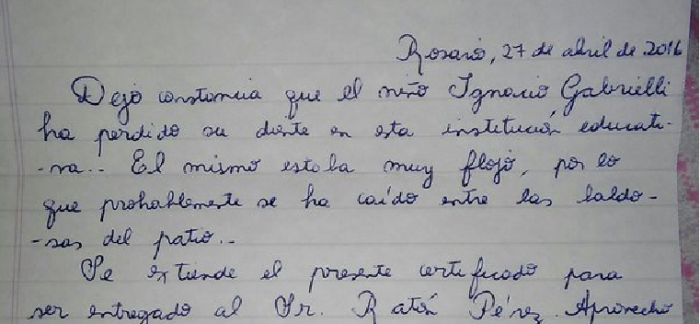 Rosario, 27 de abril de 2016
Dejo constancia que el niño Ignacio Gabrielli
ha perdido su diente en esta institución educati-
-va.. El mismo estaba muy flojo, por lo
que probablemente se ha caído entre las baldo-
-sas del patio..
Se extiende el presente certificado para
ser entregado al Sr. Ratón Pérez. Aprovecho